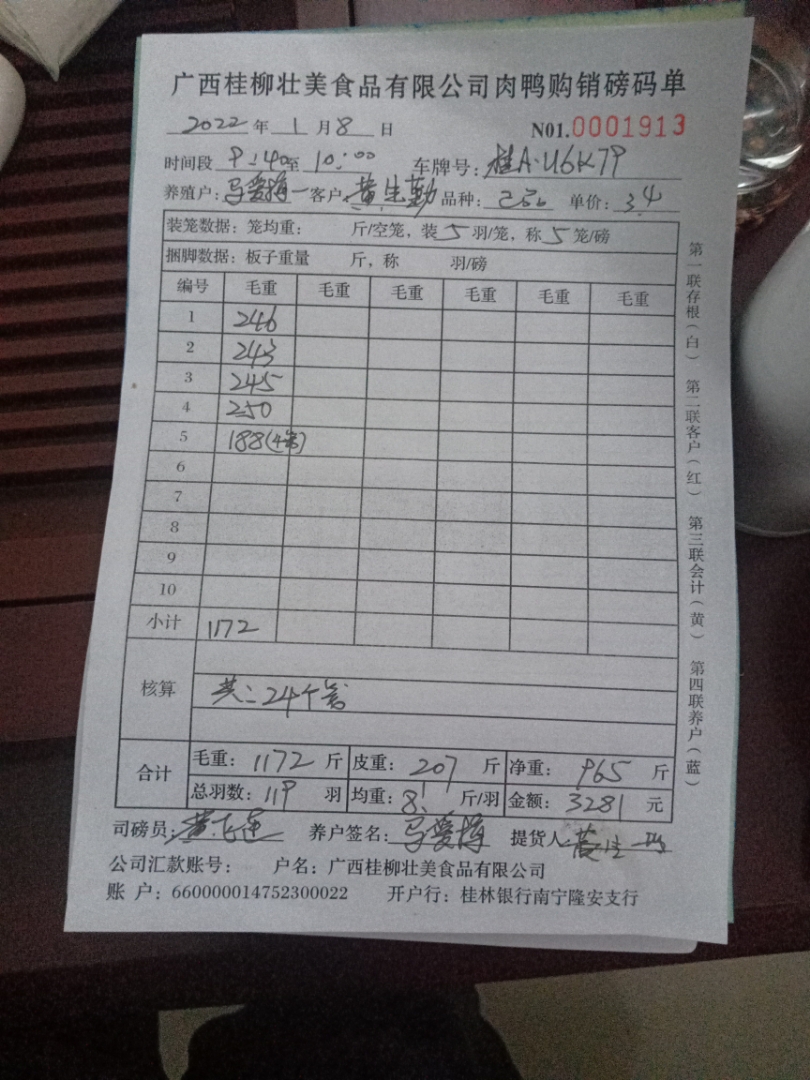 广西桂柳壮美食品有限公司肉鸭购销磅码单
2022年1月8日 N01.0001913
时间段 9:40至10:00 车牌号:桂A·U6K79
养殖户:马爱梅 客户 黄生勤 品种: 单价:3.4
装笼数据:笼均重: 斤/空笼,装5羽/笼,称5笼/磅
捆脚数据:板子重量 斤,称 羽/磅
编号 毛重 毛重 毛重 毛重 毛重 毛重
1 246
2 243
3 245
4 250
5 188(4笼)
6
7
8
9
10
小计 1172
核算 共:24个笼
合计 毛重:1172斤 皮重:207斤 净重:965斤
总羽数:119羽 均重:8.1斤/羽 金额:3281元
司磅员: 养户签名:马爱梅 提货人:
公司汇款账号: 户名:广西桂柳壮美食品有限公司
账 户:660000014752300022 开户行:桂林银行南宁隆安支行
第一联存根(白) 第二联客户(红) 第三联会计(黄) 第四联养户(蓝)